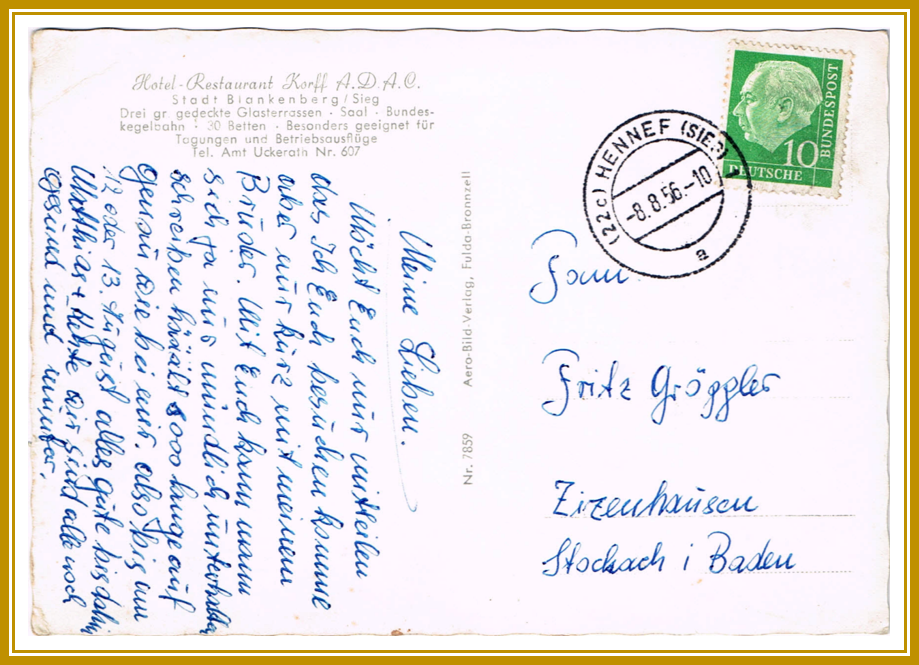 Hotel-Restaurant Korff A.D.A.C.
Stadt Blankenberg/Sieg
Drei gr. gedeckte Glasterrassen · Saal · Bundes-
kegelbahn · 30 Betten · Besonders geeignet für
Tagungen und Betriebsausflüge
Tel. Amt Uckerath Nr. 607
Meine Lieben.
Möcht Euch nur mitteilen
das Ich Euch besuchen komme
aber nur kurz mit meinem
Bruder. Mit Euch kann mann
sich ja nur mündlich unterhalten
schreiben hääält sooo lange auf
genau wie bei mir. also bis um
12 oder 13. August alles gute bis dahin
Matthias + wir sind alle noch
gesund und munter.
Nr. 7859 Aero-Bild-Verlag, Fulda-Bronnzell
(22c) HENNEF (SIEG)
-8.8.56.-10
a
10
DEUTSCHE
BUNDESPOST
Fam.
Fritz Gröggler
Zizenhausen
Stockach i Baden